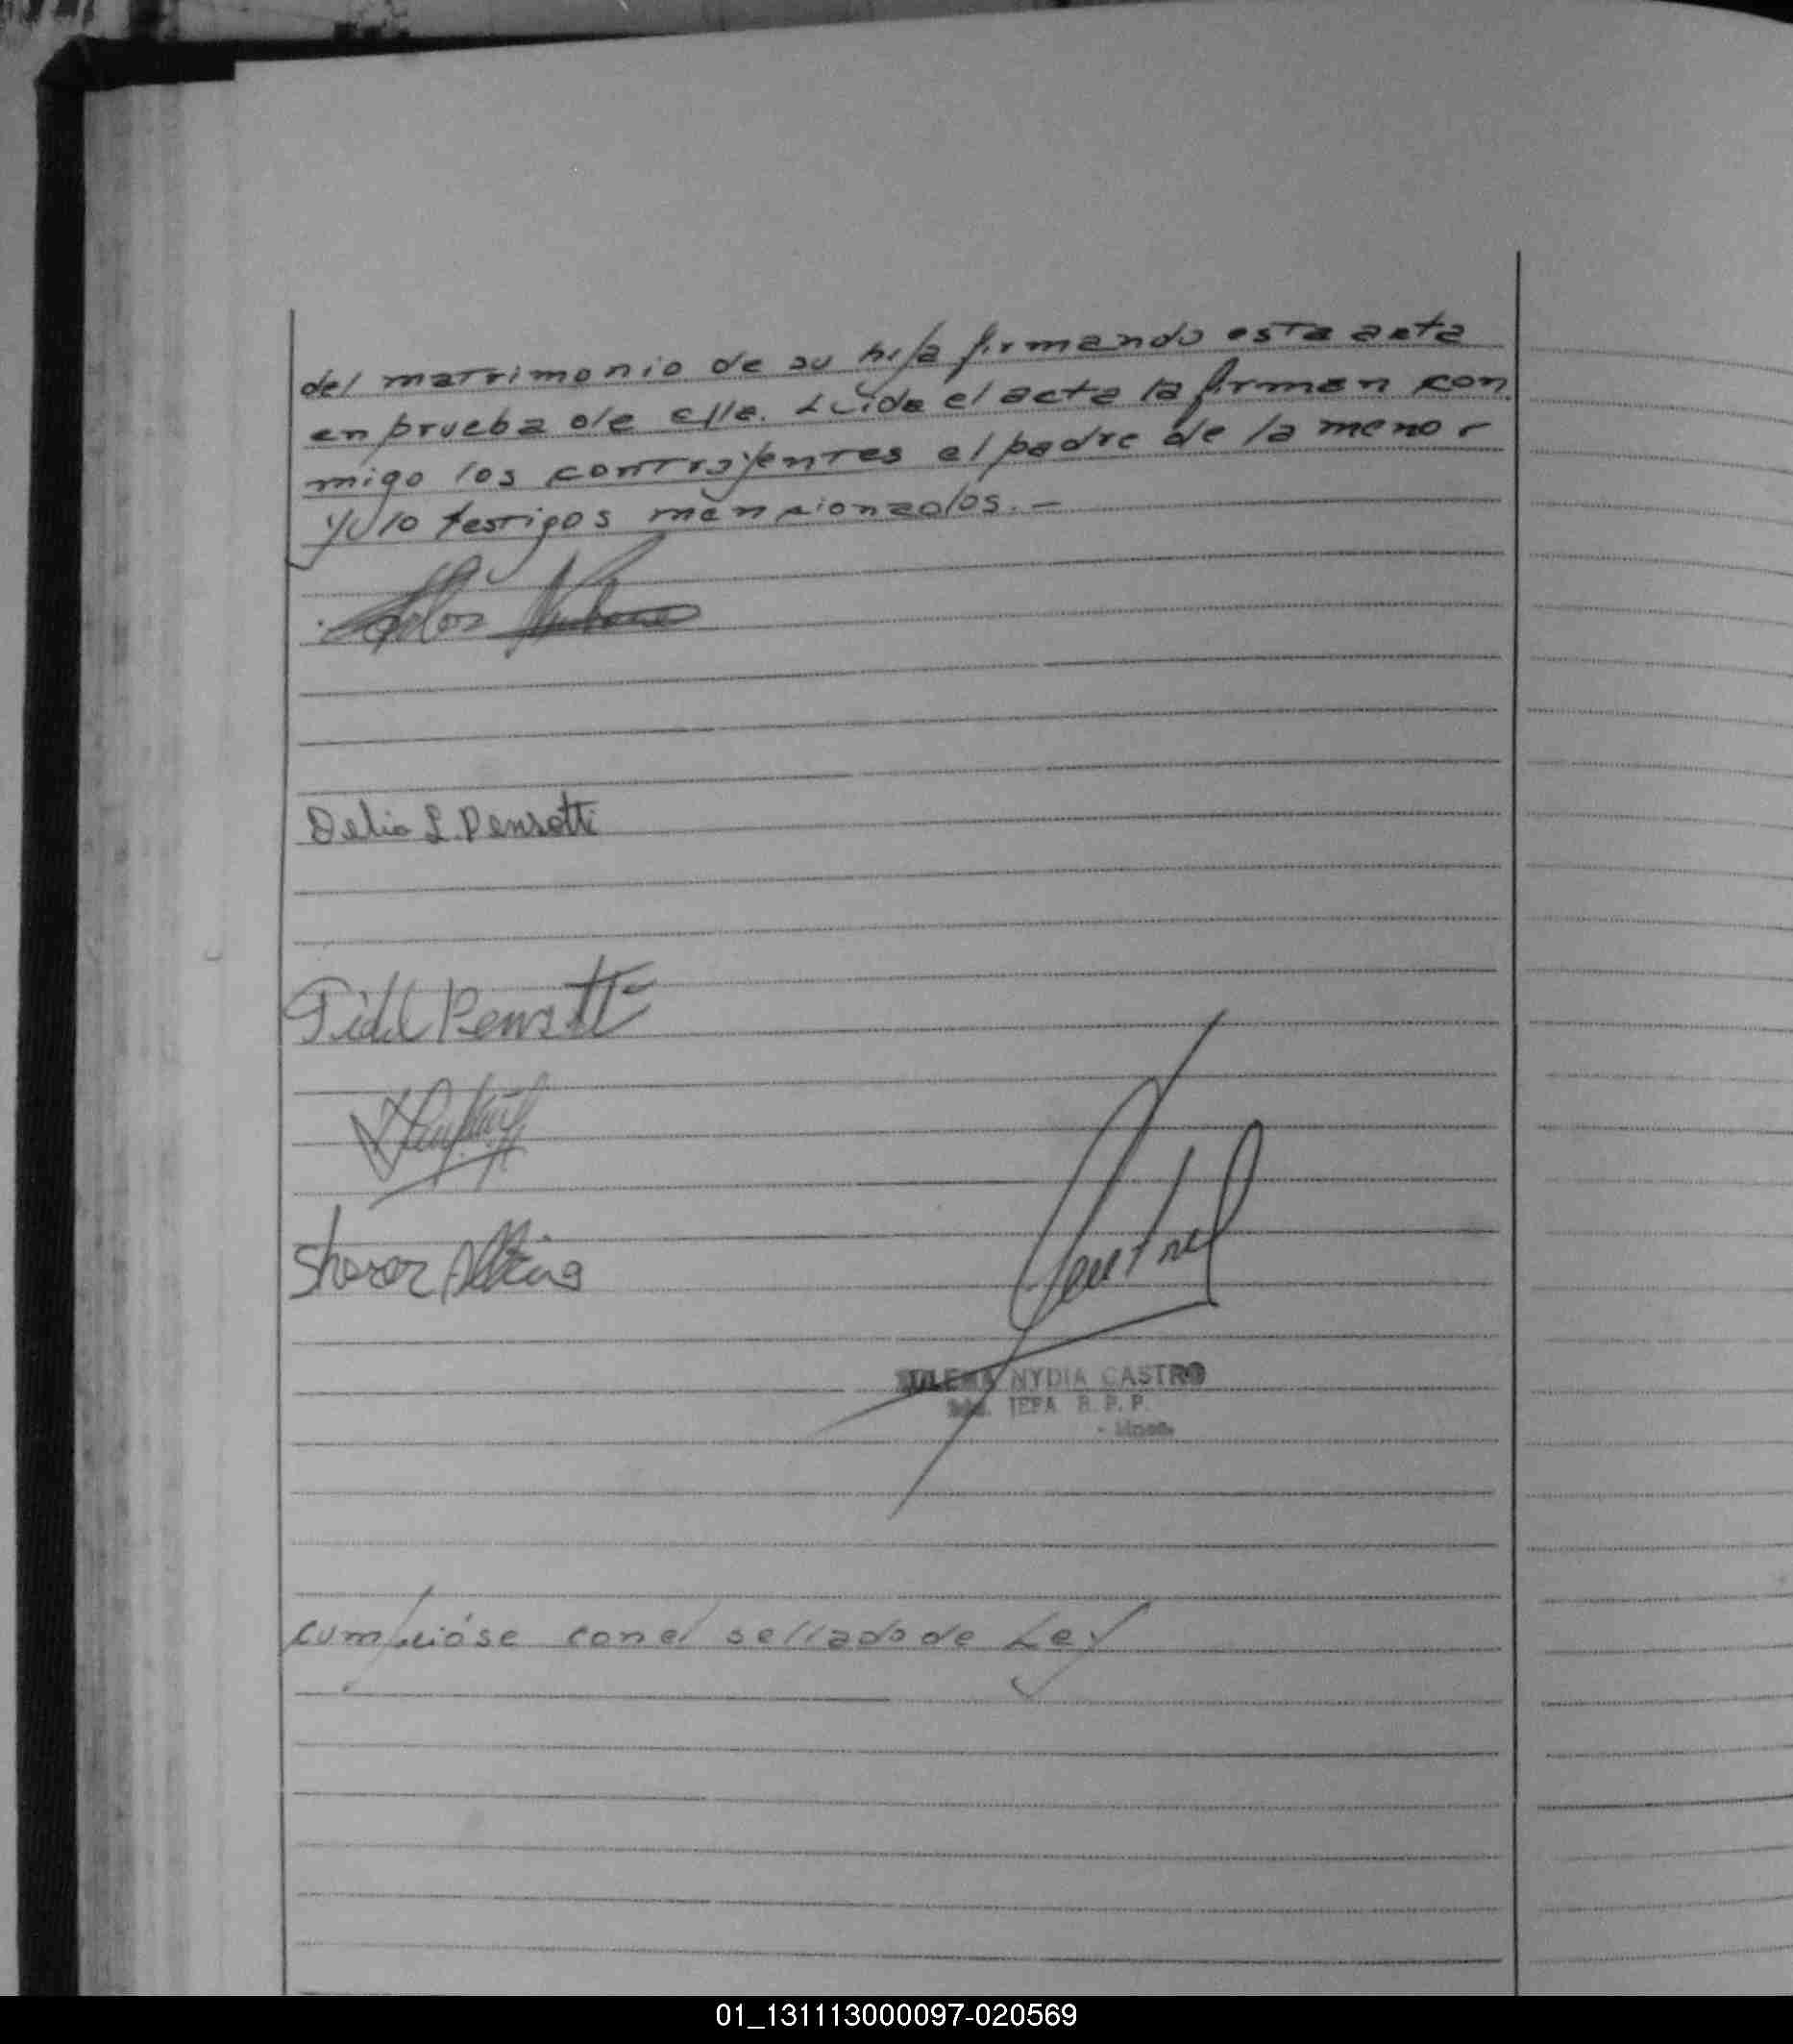 del matrimonio de su hija firmando esta acta
en prueba de ello. Leída el acta la firman con
migo los contrayentes el padre de la menor
y lo testigos mencionados. -
Delia L. Pensotti
Fidel Pensotti
NYDIA CASTRO
JEFA R. P. P.
cumplióse con el sellado de Ley
01_131113000097-020569